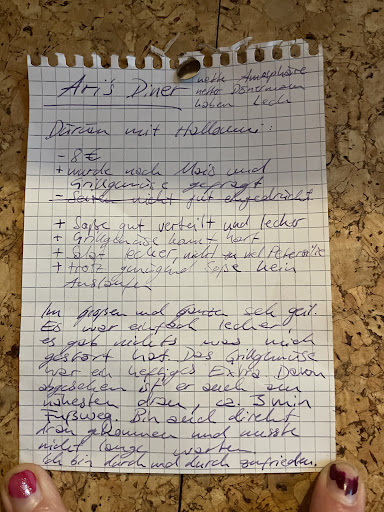 Ari's Diner
nette Atmosphäre
netter Dönermann
haben Lech
Dürüm mit Halloumi:
- 8€
+ wurde nach Mais und
Grillgemüse gefragt
- nicht gut eingedrückt
+ Soße gut verteilt und lecher
+ Grillgemüse hart
+ Salat lecher, nicht zu viel Petersilie
+ trotz genügend Soße kein
Auslaufen
Im großen und ganzen sehr geil.
Es war einfach lecher!
es gab nichts was mich
gestört hat. Das Grillgemüse
war ein heftiges Extra. Davon
abgesehen ist er auch am
nähesten dran, ca. 3 min
Fußweg. Bin auch direkt
dran gekommen und musste
nicht lange warten
Ich bin durch und durch zufrieden.